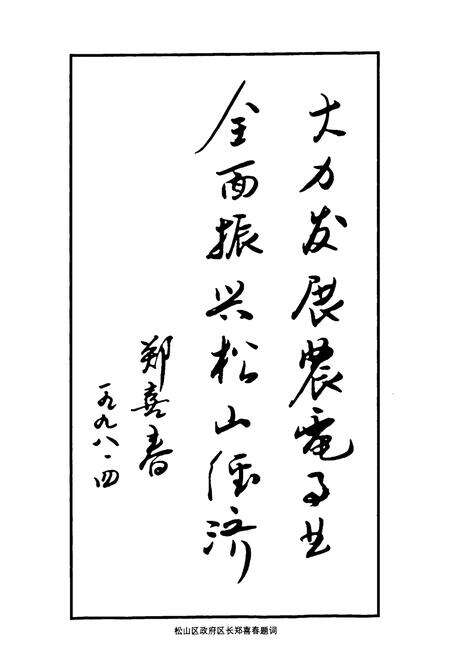 大力发展農電事业
全面振兴松山经济
郑喜春
一九九八·四
松山区政府区长郑喜春题词